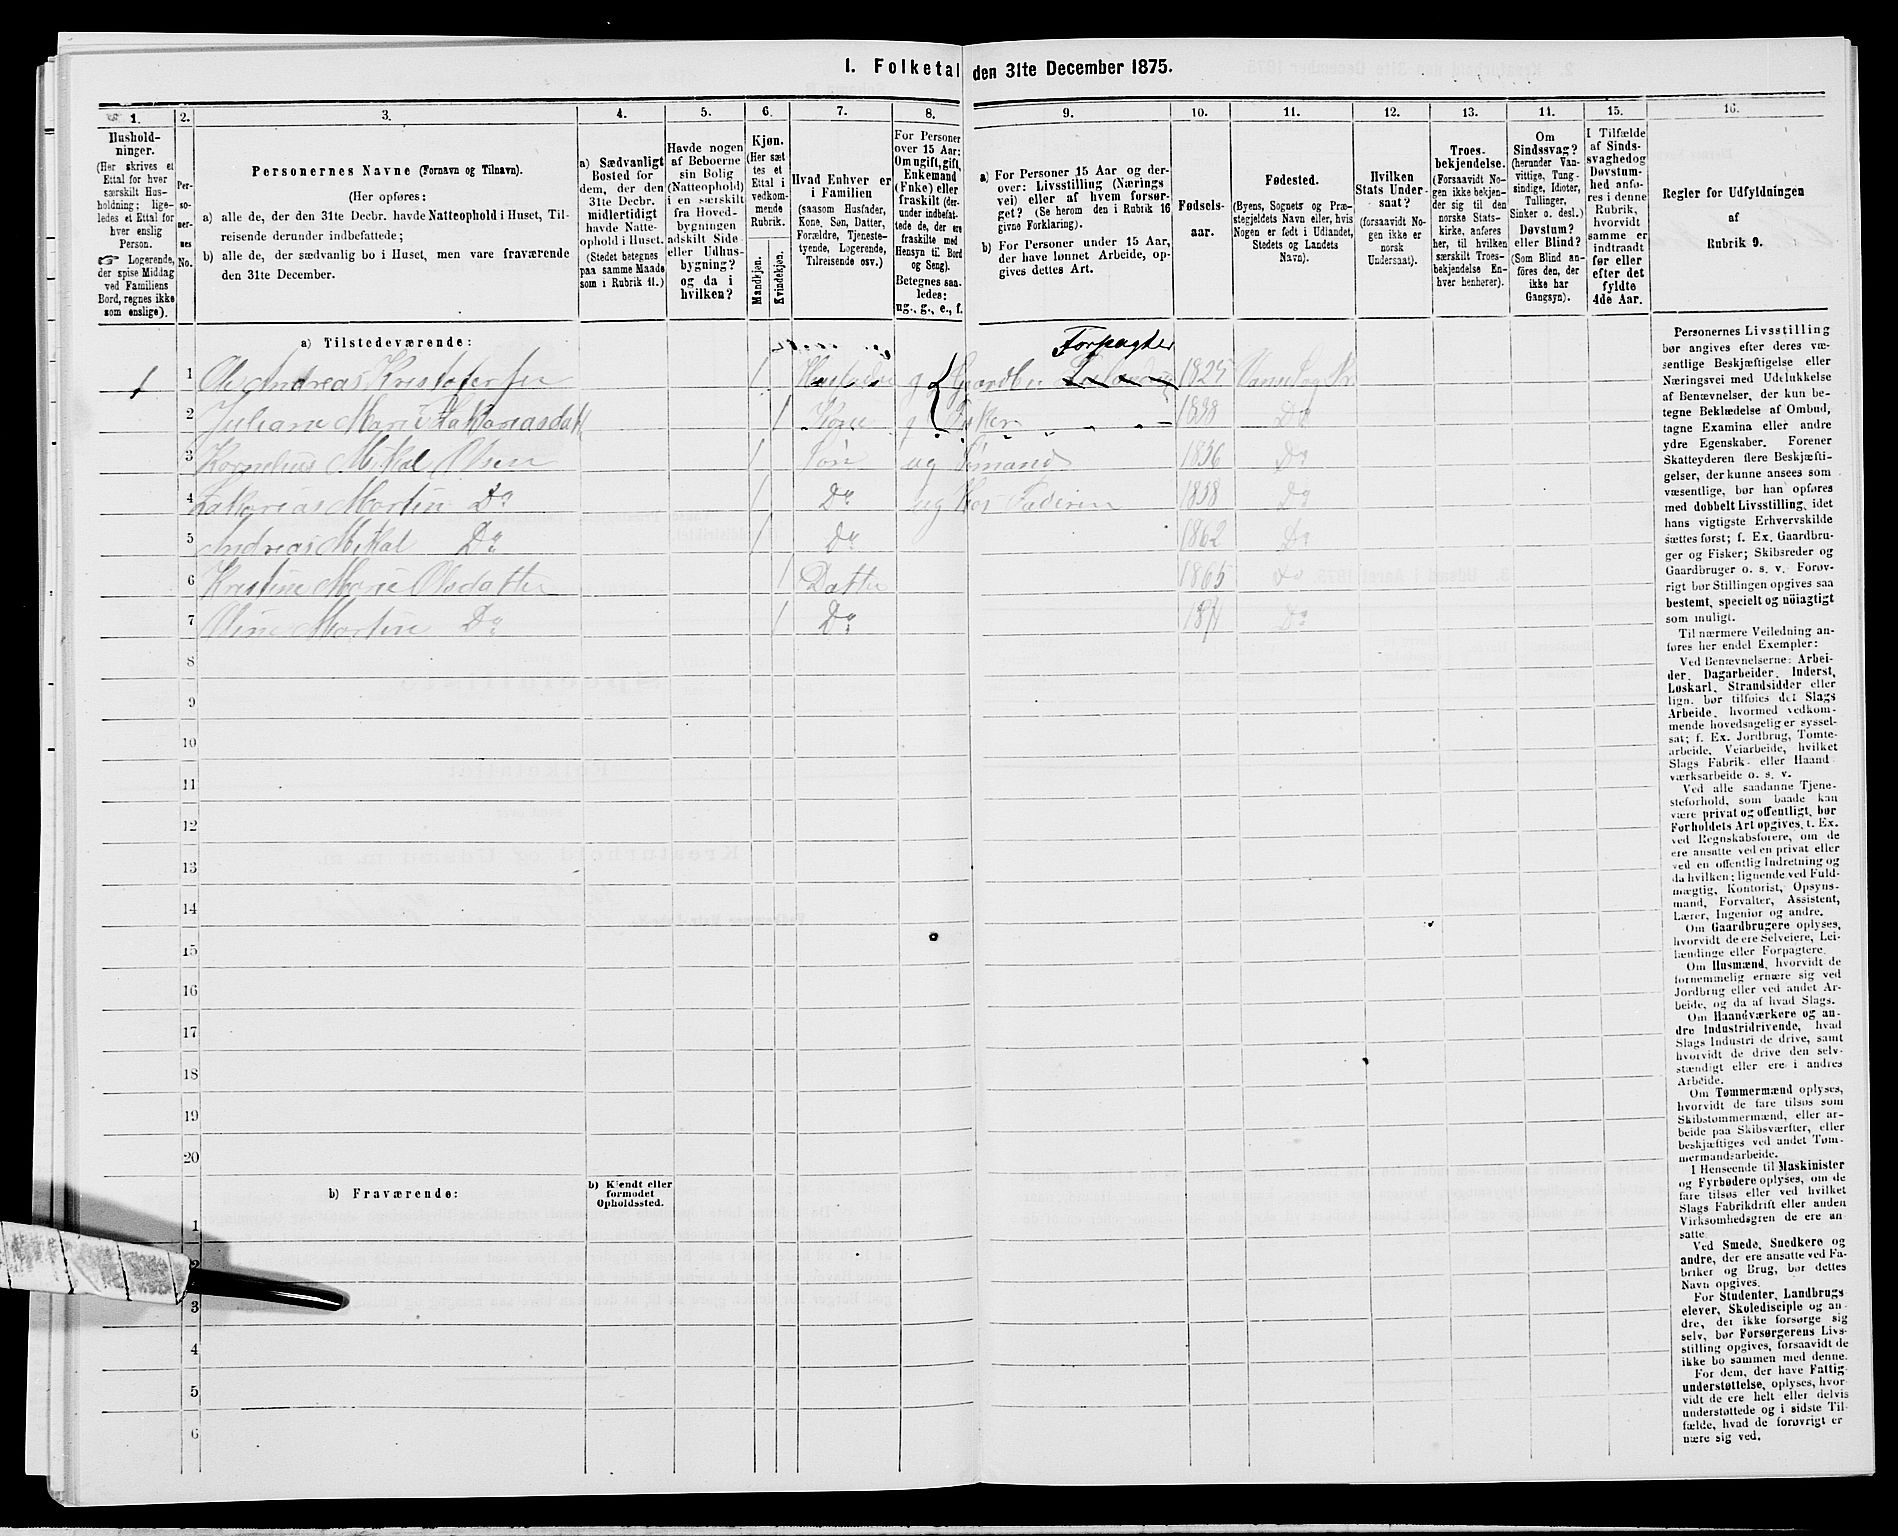 I. Folketal den 31te December 1875.
1.
Hushold-
ninger.
(Her skrives et
Ettal for hver
særskilt Hus-
holdning; lige-
ledes et Ettal for
hver enslig
Person.
☞ Logerende,
der spise Middag
ved Familiens
Bord, regnes ikke
som enslige).
2.
Per-
so-
ner-
nes
No.
3.
Personernes Navne (Fornavn og Tilnavn).
(Her opføres:
a) alle de, der den 31te Decbr. havde Natteophold i Huset, Til-
reisende derunder indbefattede;
b) alle de, der sædvanlig bo i Huset, men vare fraværende
den 31te December.
4.
a) Sædvanligt
Bosted for
dem, der den
31te Decbr.
midlertidigt
havde Natte-
ophold i Huset.
(Stedet betegnes
paa samme Maade
som i Rubrik 11.)
5.
Havde nogen
af Beboerne
sin Bolig
(Natteophold)
i en særskilt
fra Hoved-
bygningen
adskilt Side-
eller Udhus-
bygning?
og da i
hvilken?
6.
Kjøn.
(Her sæt-
tes et
Ettal i
vedkom-
mende
Rubrik.
Mandkjøn.
Kvindekjøn.
7.
Hvad Enhver er
i Familien
(saasom Husfader,
Kone, Søn, Datter,
Forældre, Tjeneste-
tyende, Logerende,
Tilreisende osv.)
8.
For Personer
over 15 Aar:
Om ugift, gift,
Enkemand
(Enke) eller
fraskilt (der-
under indbefat-
tede de, der ere
fraskilte med
Hensyn til Bord
og Seng).
Betegnes saa-
ledes:
ug., g., e., f.
9.
a) For Personer 15 Aar og der-
over: Livsstilling (Nærings-
vei) eller af hvem forsør-
get? (Se herom den i Rubrik 16
givne Forklaring).
b) For Personer under 15 Aar,
der have lønnet Arbeide, op-
gives dettes Art.
10.
Fødsels-
aar.
11.
Fødested.
(Byens, Sognets og Præ-
stegjeldets Navn eller, hvis
Nogen er født i Udlandet,
Stedets og Landets
Navn).
12.
Hvilken
Stats Under-
saat?
(forsaavidt No-
gen ikke er
norsk
Undersaat).
13.
Troes-
bekjendelse.
(Forsaavidt No-
gen ikke bekjen-
der sig til den
norske Stats-
kirke, anføres
her, til hvilken
særskilt Troes-
bekjendelse En-
hver henhører).
14.
Om
Sindssvag?
(herunder Van-
vittige, Tung-
sindige, Idioter,
Tullinger,
Sinker o. desl.)
Døvstum?
eller Blind?
(Som Blind an-
føres den, der
ikke har
Gangsyn).
15.
I Tilfælde
af Sinds-
svaghed og
Døvstum-
hed anfø-
res i denne
Rubrik,
hvorvidt
samme er
indtraadt
før eller
efter det
fyldte
4de Aar.
16.
Regler for Udfyldningen
af
Rubrik 9.
a) Tilstedeværende:
Forpagter
1 1 Ole Andreas Kristofersen 1 Husfader g Gaardbr 1825
2 Juliane Marie Zakkariasdatt 1 Kone g Fisker 1838 Do
3 Kornelius Mikal Olsen 1 Søn ug Sømand 1856 Do
4 Zakarias Martin Do 1 Do ug Hos Faderen 1858 Do
5 Andreas Mikal Do 1 Do 1862 Do
6 Kristine Marie Olsdatter 1 Datter 1865 Do
7 Oline Martine Do 1 Do 1871 Do
8
9
10
11
12
13
14
15
16
17
18
19
20
b) Fraværende:
b) Kjendt eller
formodet
Opholdssted.
1
2
3
4
5
6
Personernes Livsstilling
bør angives efter deres væ-
sentlige Beskjæftigelse eller
Næringsvei med Udelukkelse
af Benævnelser, der kun be-
tegne Beklædelse af Ombud,
tagne Examina eller andre
ydre Egenskaber. Forener
Skatteyderen flere Beskjæfti-
gelser, der kunne ansees som
væsentlige, bør han opføres
med dobbelt Livsstilling, idet
hans vigtigste Erhvervskilde
sættes først; f. Ex. Gaardbru-
ger og Fisker; Skibsreder og
Gaardbruger o. s. v. Forøv-
rigt bør Stillingen opgives saa
bestemt, specielt og nöiagtigt
som muligt.
Til nærmere Veiledning an-
føres her endel Exempler:
Ved Benævnelserne: Arbei-
der, Dagarbeider, Inderst,
Løskarl, Strandsidder eller
lign. bør tilføies det Slags
Arbeide, hvormed vedkom-
mende hovedsagelig er syssel-
sat; f. Ex. Jordbrug, Tomte-
arbeide, Veiarbeide, hvilket
Slags Fabrik- eller Haand-
værksarbeide o. s. v.
Ved alle saadanne Tjene-
steforhold, som baade kan
være privat og offentligt, bør
Forholdets Art opgives, t. Ex.
ved Regnskabsførere, om de
ere ansatte ved en privat eller
ved en offentlig Indretning og
da hvilken; lignende ved Fuld-
mægtig, Kontorist, Opsyns-
mand, Forvalter, Assistent,
Lærer, Ingeniør og andre.
Om Gaardbrugere oplyses,
hvorvidt de ere Selveiere, Lei-
lændinge eller Forpagtere.
Om Husmænd, hvorvidt de
fornemmelig ernære sig ved
Jordbrug eller ved andet Ar-
beide, og da af hvad Slags.
Om Haandværkere og an-
dre Industridrivende, hvad
Slags Industri de drive, samt
hvorvidt de drive den selv-
stændigt eller ere i andres
Arbeide.
Om Tømmermænd oplyses,
hvorvidt de fare tilsøs som
Skibstømmermænd, eller ar-
beide paa Skibsværfter, eller
beskjæftiges ved andet Tøm-
mermandsarbeide.
I Henseende til Maskinister
og Fyrbødere oplyses, om de
fare tilsøs eller ved hvilket
Slags Fabrikdrift eller anden
Virksomhedsgren de ere an-
satte.
Ved Smede, Snedkere og
andre, der ere ansatte ved Fa-
briker og Brug, bør dettes
Navn opgives.
For Studenter, Landbrugs-
elever, Skoledisciple og an-
dre, der ikke forsørge sig
selv, bør Forsørgerens Livs-
stilling opgives, forsaavidt de
ikke bo sammen med denne.
For dem, der have Fattig-
understøttelse, oplyses, hvor-
vidt de ere helt eller delvis
understøttede og i sidste Til-
fælde, hvad de forøvrigt er-
nære sig ved.